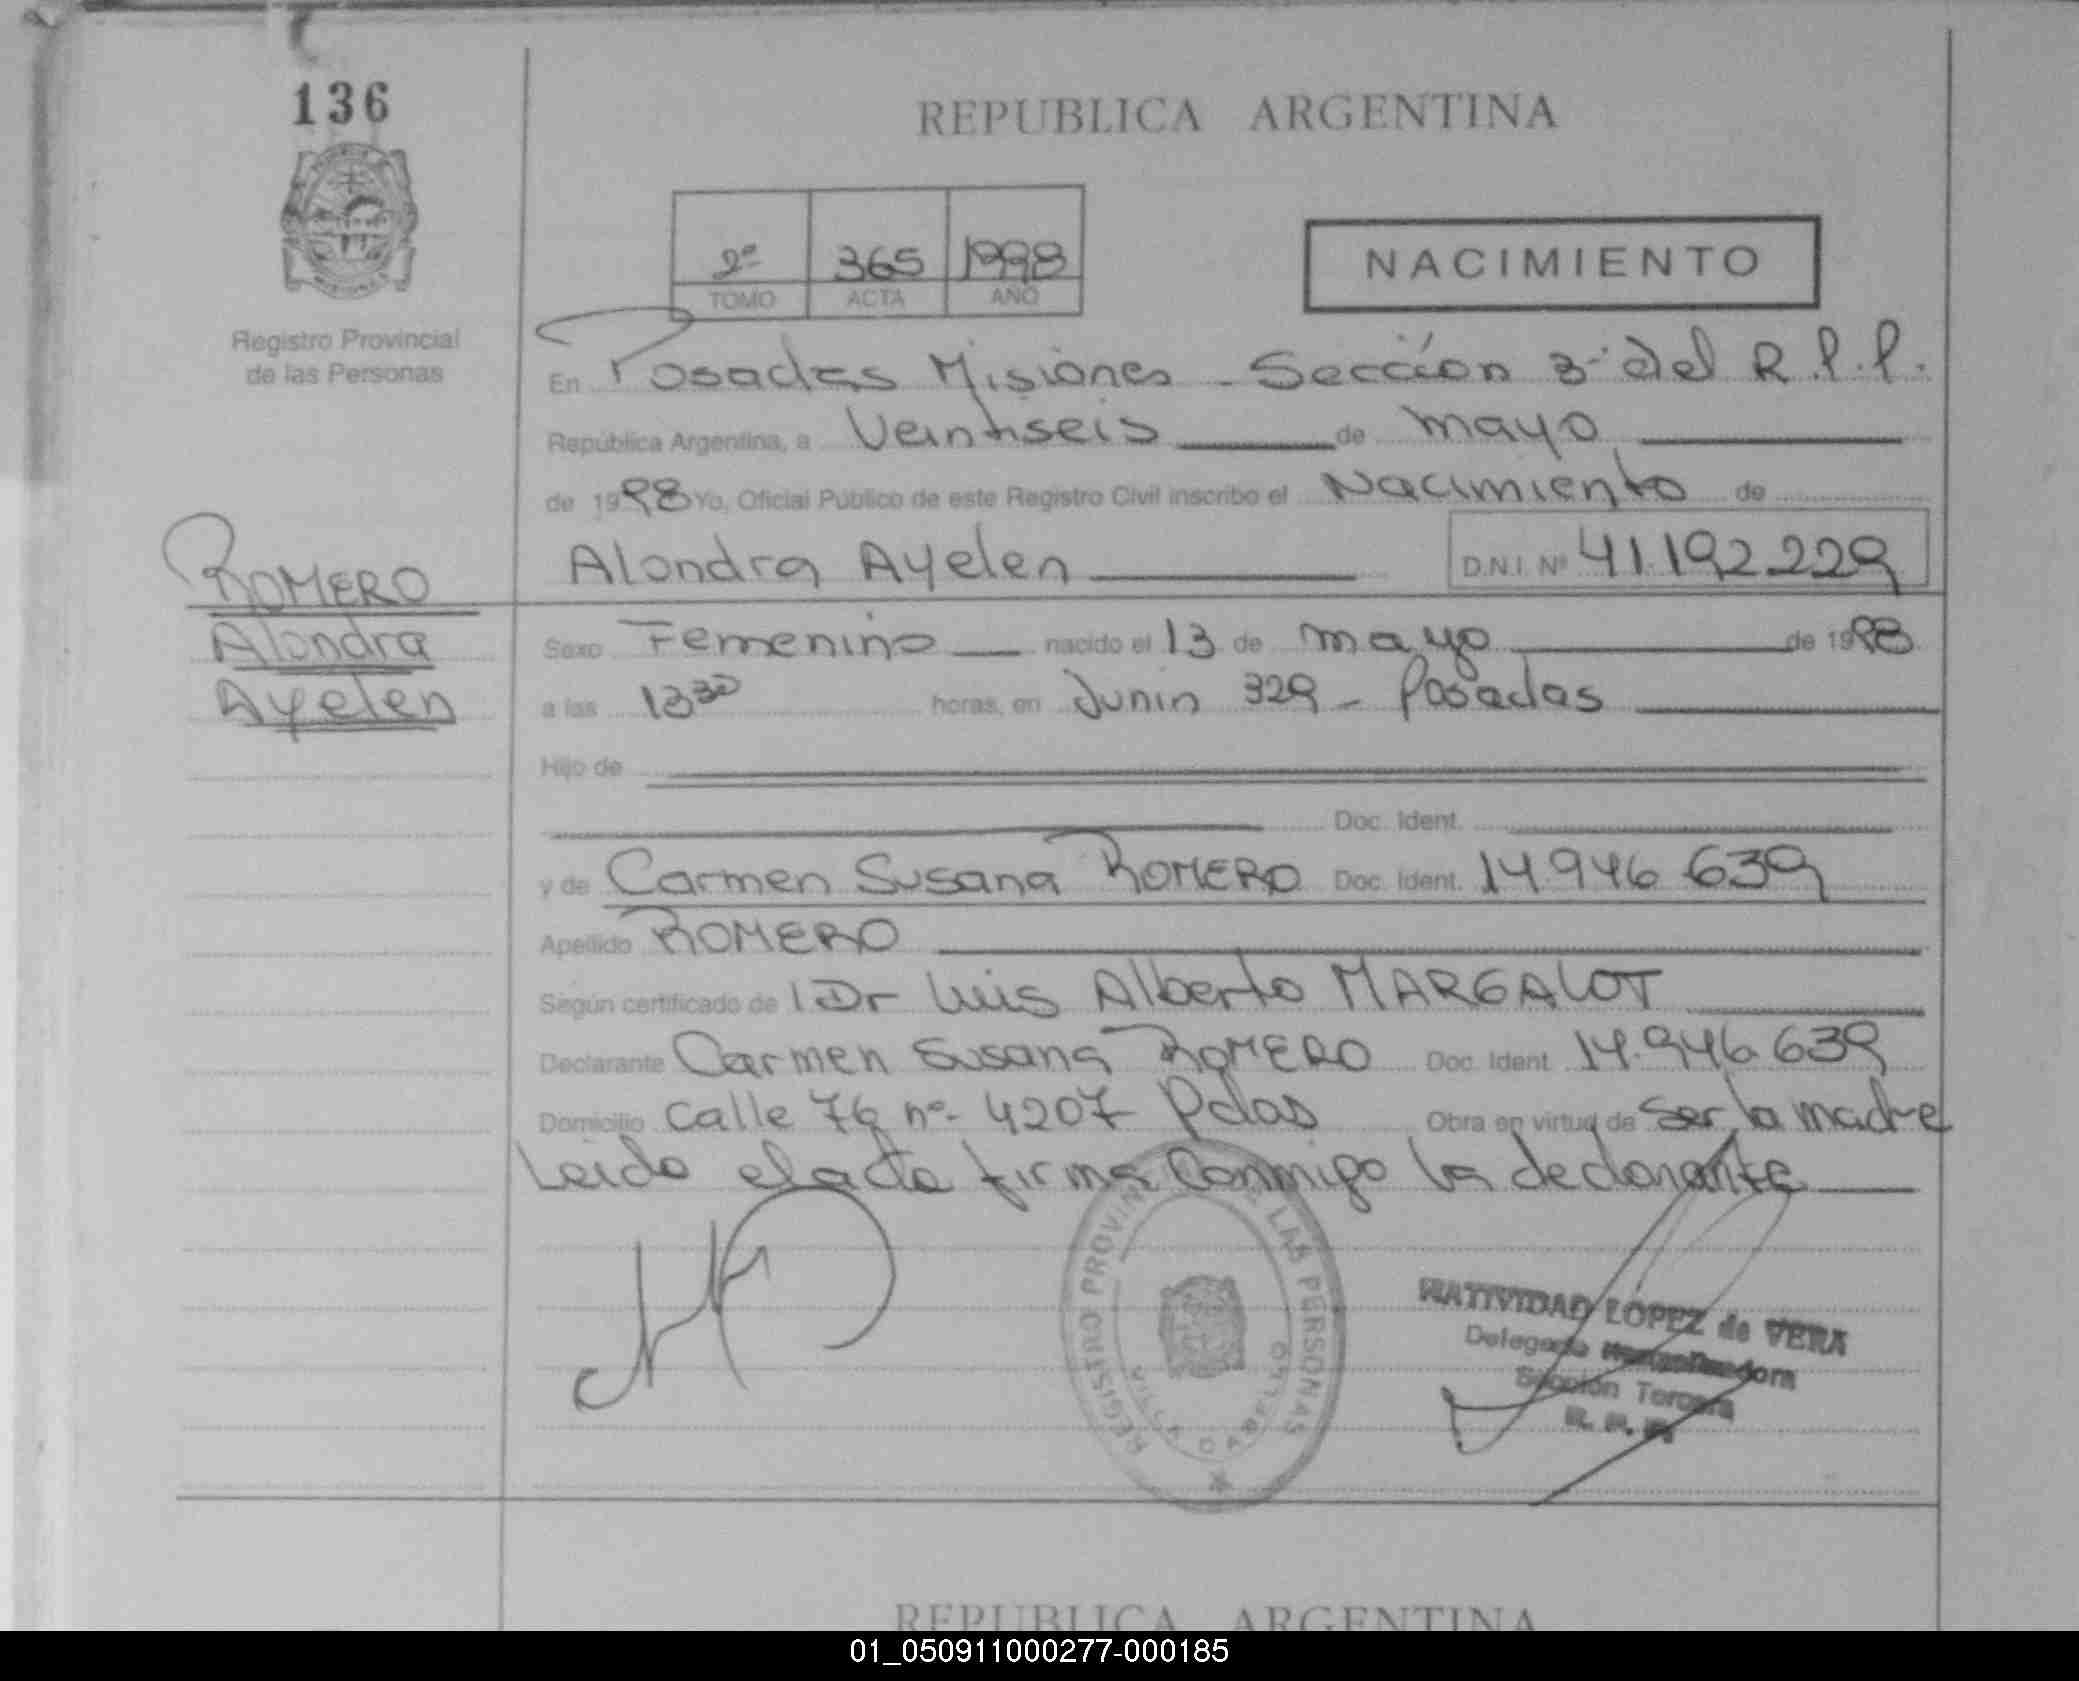 136
REPUBLICA ARGENTINA
2º 365 1998
TOMO ACTA AÑO
NACIMIENTO
Registro Provincial
de las Personas
En Posadas Misiones - Sección 3ª del R.P.P.
República Argentina, a Veintiseis de mayo
de 1998 Yo, Oficial Público de este Registro Civil inscribo el Nacimiento de
Alondra Ayelen D.N.I. Nº 41.192.229
ROMERO
Alondra
Ayelen
Sexo Femenino nacido el 13 de mayo de 1998
a las 13 30 horas, en Junin 329 - Posadas
Hijo de
Doc. Ident.
y de Carmen Susana ROMERO Doc. Ident. 14.946.639
Apellido ROMERO
Según certificado de Dr Luis Alberto MARGALOT
Declarante Carmen Susana ROMERO Doc. Ident. 14.946.639
Domicilio Calle 76 nº 4207 Pdas Obra en virtud de ser la madre
Leida el acta firma conmigo la declarante
REGISTRO PROVINCIAL DE LAS PERSONAS
VILLA CABELLO
NATIVIDAD LOPEZ de VERA
Delegada
Sección Tercera
R. P. P.
REPUBLICA ARGENTINA
01_050911000277-000185